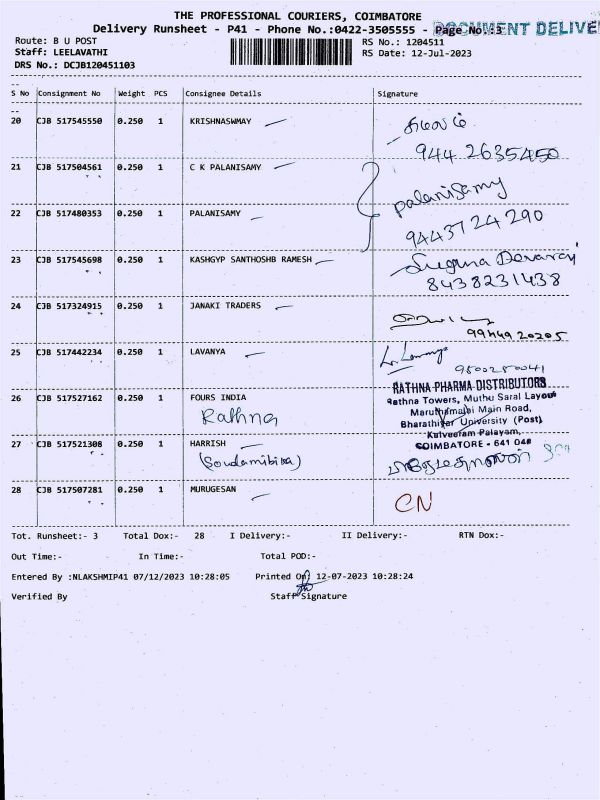 THE PROFESSIONAL COURIERS, COIMBATORE
Delivery Runsheet - P41 - Phone No.:0422-3505555 - Page No.:3
DOCUMENT DELIVE
Route: B U POST
RS No.: 1204511
Staff: LEELAVATHI
RS Date: 12-Jul-2023
DRS No.: DCJB120451103
S No Consignment No Weight PCS Consignee Details Signature
20 CJB 517545550 0.250 1 KRISHNASWMAY
944 2635450
21 CJB 517504561 0.250 1 C K PALANISAMY
palanisamy
22 CJB 517480353 0.250 1 PALANISAMY
9443724290
23 CJB 517545698 0.250 1 KASHGYP SANTHOSHB RAMESH
Suguna Devaraj
8438231438
24 CJB 517324915 0.250 1 JANAKI TRADERS
99449 20205
25 CJB 517442234 0.250 1 LAVANYA
9500250041
26 CJB 517527162 0.250 1 FOURS INDIA
Rathna
RATHNA PHARMA DISTRIBUTORS
Rathna Towers, Muthu Saral Layout
Maruthamalai Main Road,
Bharathiyar University (Post)
Kalveeram Palayam,
COIMBATORE - 641 046
27 CJB 517521308 0.250 1 HARRISH
(Soudamibika)
28 CJB 517507281 0.250 1 MURUGESAN
CN
Tot. Runsheet:- 3 Total Dox:- 28 I Delivery:- II Delivery:- RTN Dox:-
Out Time:- In Time:- Total POD:-
Entered By :NLAKSHMIP41 07/12/2023 10:28:05 Printed On: 12-07-2023 10:28:24
Verified By Staff Signature